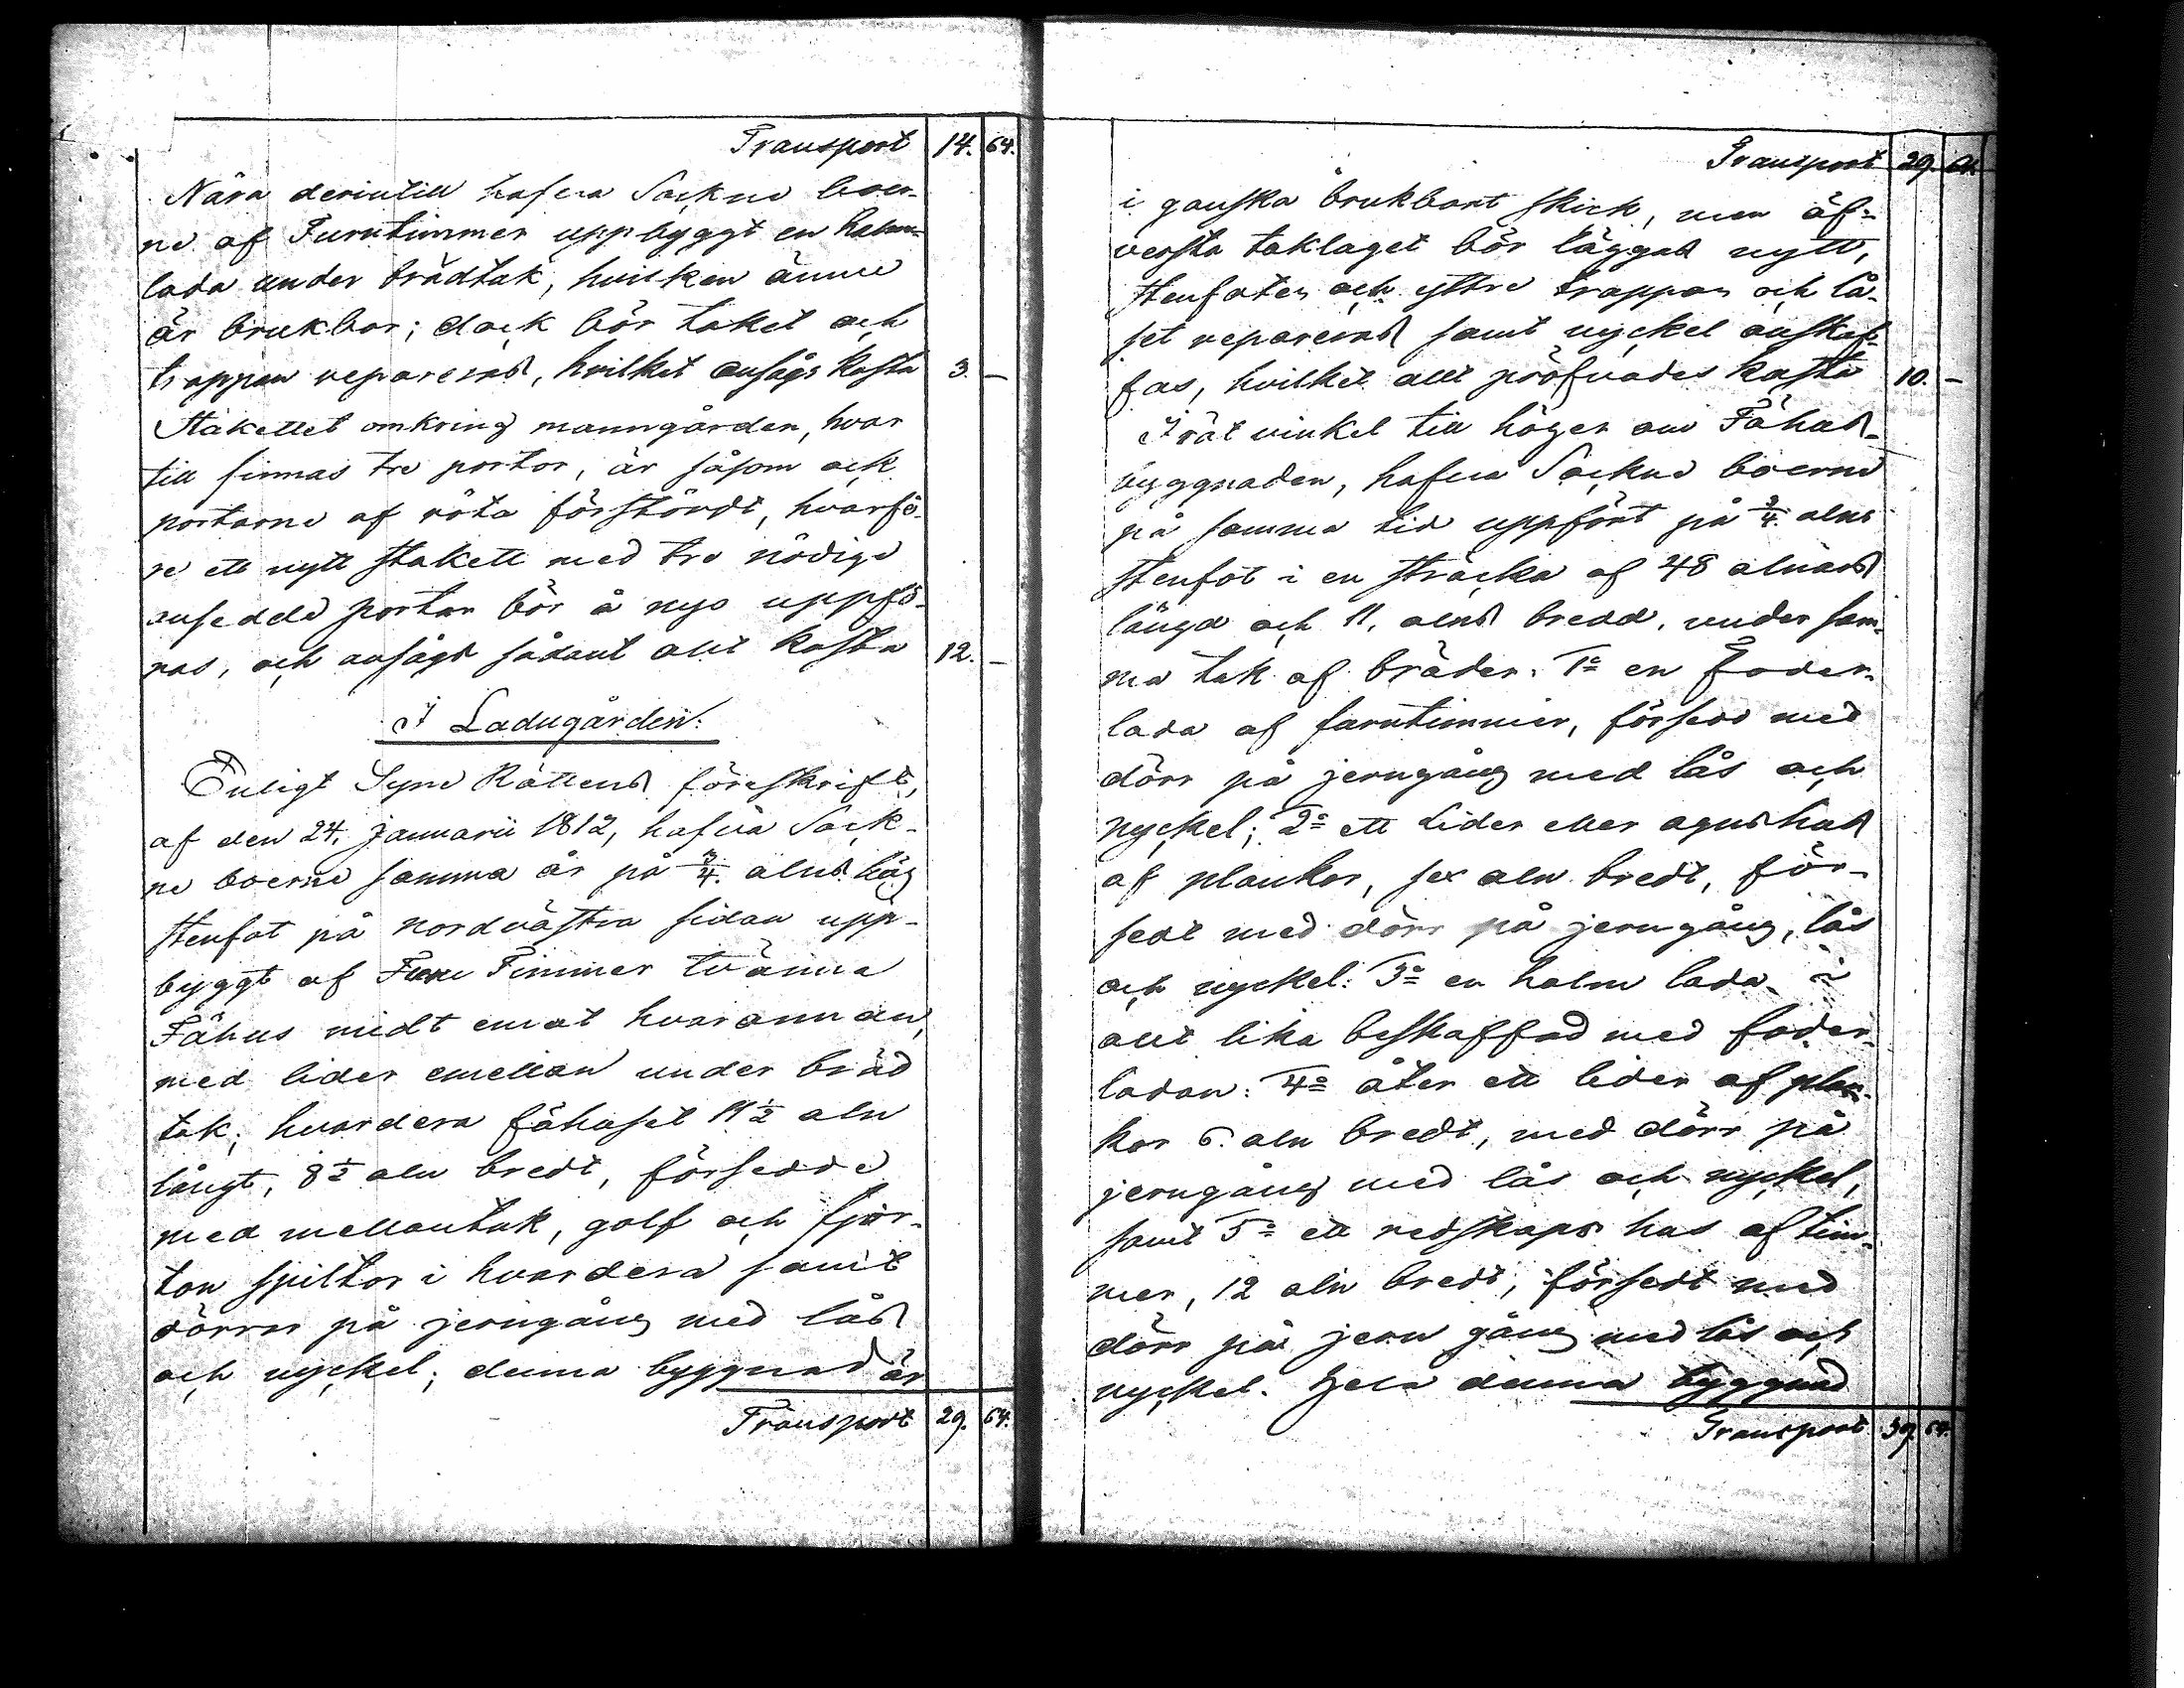 Transport 14. 64.
Nära derintill hafva Sockne boer-
ne af Furutimmer uppbyggt en halm-
lada under brädtak, hvilken ännu
är brukbar; dock bör taket och
trappan repareras, hvilket ansågs kosta 3. —
Stakettet omkring manngården, hvar
till finnas tre portar, är såsom ock
portarne af röta förstördt, hvarfö-
re ett nytt stakett med tre nödige
ansedde portar bör å nyo uppfö-
ras, och ansågs sådant allt kosta 12. —
I Ladugården:
Enligt Syne Rättens föreskrift,
af den 24. Januarii 1812, hafva Sock-
ne boerne samma år på 3/4. alns hög
stenfot på nordvästra sidan upp-
byggt af Furu Timmer tvänna
Fähus midt emot hvarannan,
med lider emellan under bräd
tak; hvardera fähuset 11 1/2 aln
långt, 8 1/2 aln bredt, försedde
med mellantak, golf och fjor-
ton spiltor i hvardera samt
dörrar på jerngång med lås
och nyckel; denna byggnad är
Transport 29. 64.
Transport 29. 64.
i ganska brukbart skick, men öf-
versta taklaget bör läggas nytt,
stenfoten och yttre trappan och lå-
set repareras samt nyckel anskaf-
fas, hvilket allt pröfvades kosta 10. —
I rät vinkel till höger om Fähus-
byggnaden, hafva Sockne boerne
på samma tid uppfört på 3/4. alns
stenfot i en sträcka af 48 alnars
längd och 11. alns bredd, under sam-
ma tak af bräder: 1o en foder-
lada af furutimmer, försedd med
dörr på jerngång med lås och
nyckel; 2o ett Lider eller agnshus
af plankor, sex aln bredt, för-
sedt med dörr på jerngång, lås
och nyckel: 3o en halm lada i
allt lika beskaffad med foder-
ladan: 4o åter ett lider af plan-
kor 6. aln bredt, med dörr på
jerngång med lås och nyckel,
samt 5o ett redskaps hus af tim-
mer, 12 aln bredt, försedt med
dörr på jern gång med lås och
nyckel. Hela denna byggnad
Transport 39. 64.